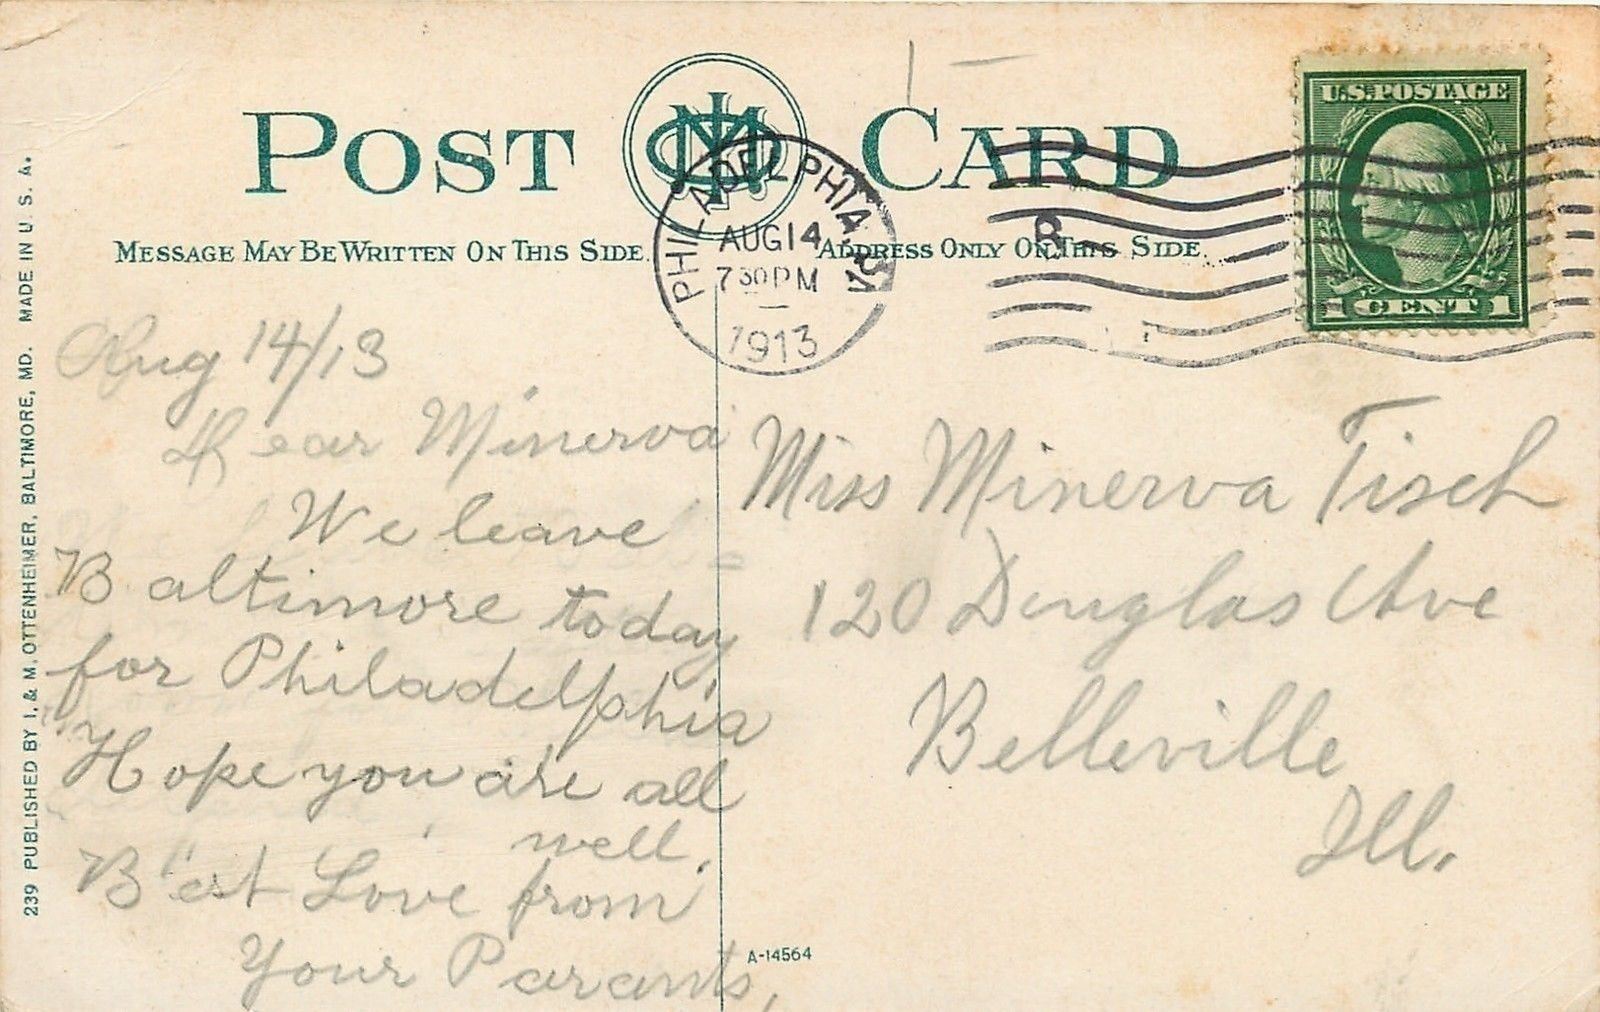 POST CARD
MESSAGE MAY BE WRITTEN ON THIS SIDE.
ADDRESS ONLY ON THIS SIDE.
PHILADELPHIA, PA
AUG 14
7 30 PM
1913
U.S. POSTAGE
1 CENT 1
Aug 14/13
Dear Minerva
We leave
Baltimore today
for Philadelphia
Hope you are all
well.
Best Love from
Your Parants,
Miss Minerva Tisch
120 Douglas Ave
Belleville
Ill.
A-14564
239 PUBLISHED BY I. & M. OTTENHEIMER, BALTIMORE, MD. MADE IN U. S. A.